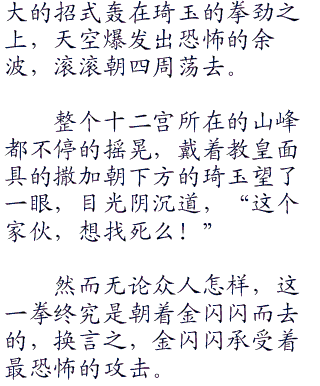 大的招式轰在琦玉的拳劲之
上，天空爆发出恐怖的余
波，滚滚朝四周荡去。
整个十二宫所在的山峰
都不停的摇晃，戴着教皇面
具的撒加朝下方的琦玉望了
一眼，目光阴沉道，“这个
家伙，想找死么！”
然而无论众人怎样，这
一拳终究是朝着金闪闪而去
的，换言之，金闪闪承受着
最恐怖的攻击。